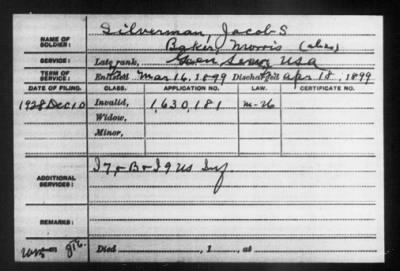 NAME OF SOLDIER: Silverman, Jacob S
Baker, Morris (alias)
SERVICE: Late rank, Genl Service USA
TERM OF SERVICE: Enlisted Mar 16, 1899 Discharged Apr 18, 1899
DATE OF FILING. CLASS. APPLICATION NO. LAW. CERTIFICATE NO.
1928 Dec 10 Invalid, 1,630,181 m-26
Widow,
Minor,
ADDITIONAL SERVICES: I 7, & B & I 9 US Inf.
REMARKS:
Died , 1 , at